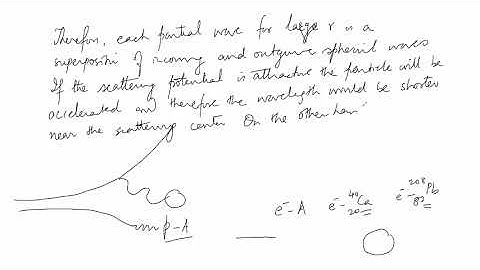 Therefore, each partial wave for large r is a
superposition of incoming and outgoing spherical waves
If the scattering potential is attractive the particle will be
accelerated and therefore the wavelength would be shorter
near the scattering center On the other han
p-A
e⁻-A e⁻-⁴⁰₂₀Ca e⁻-²⁰⁸₈₂Pb